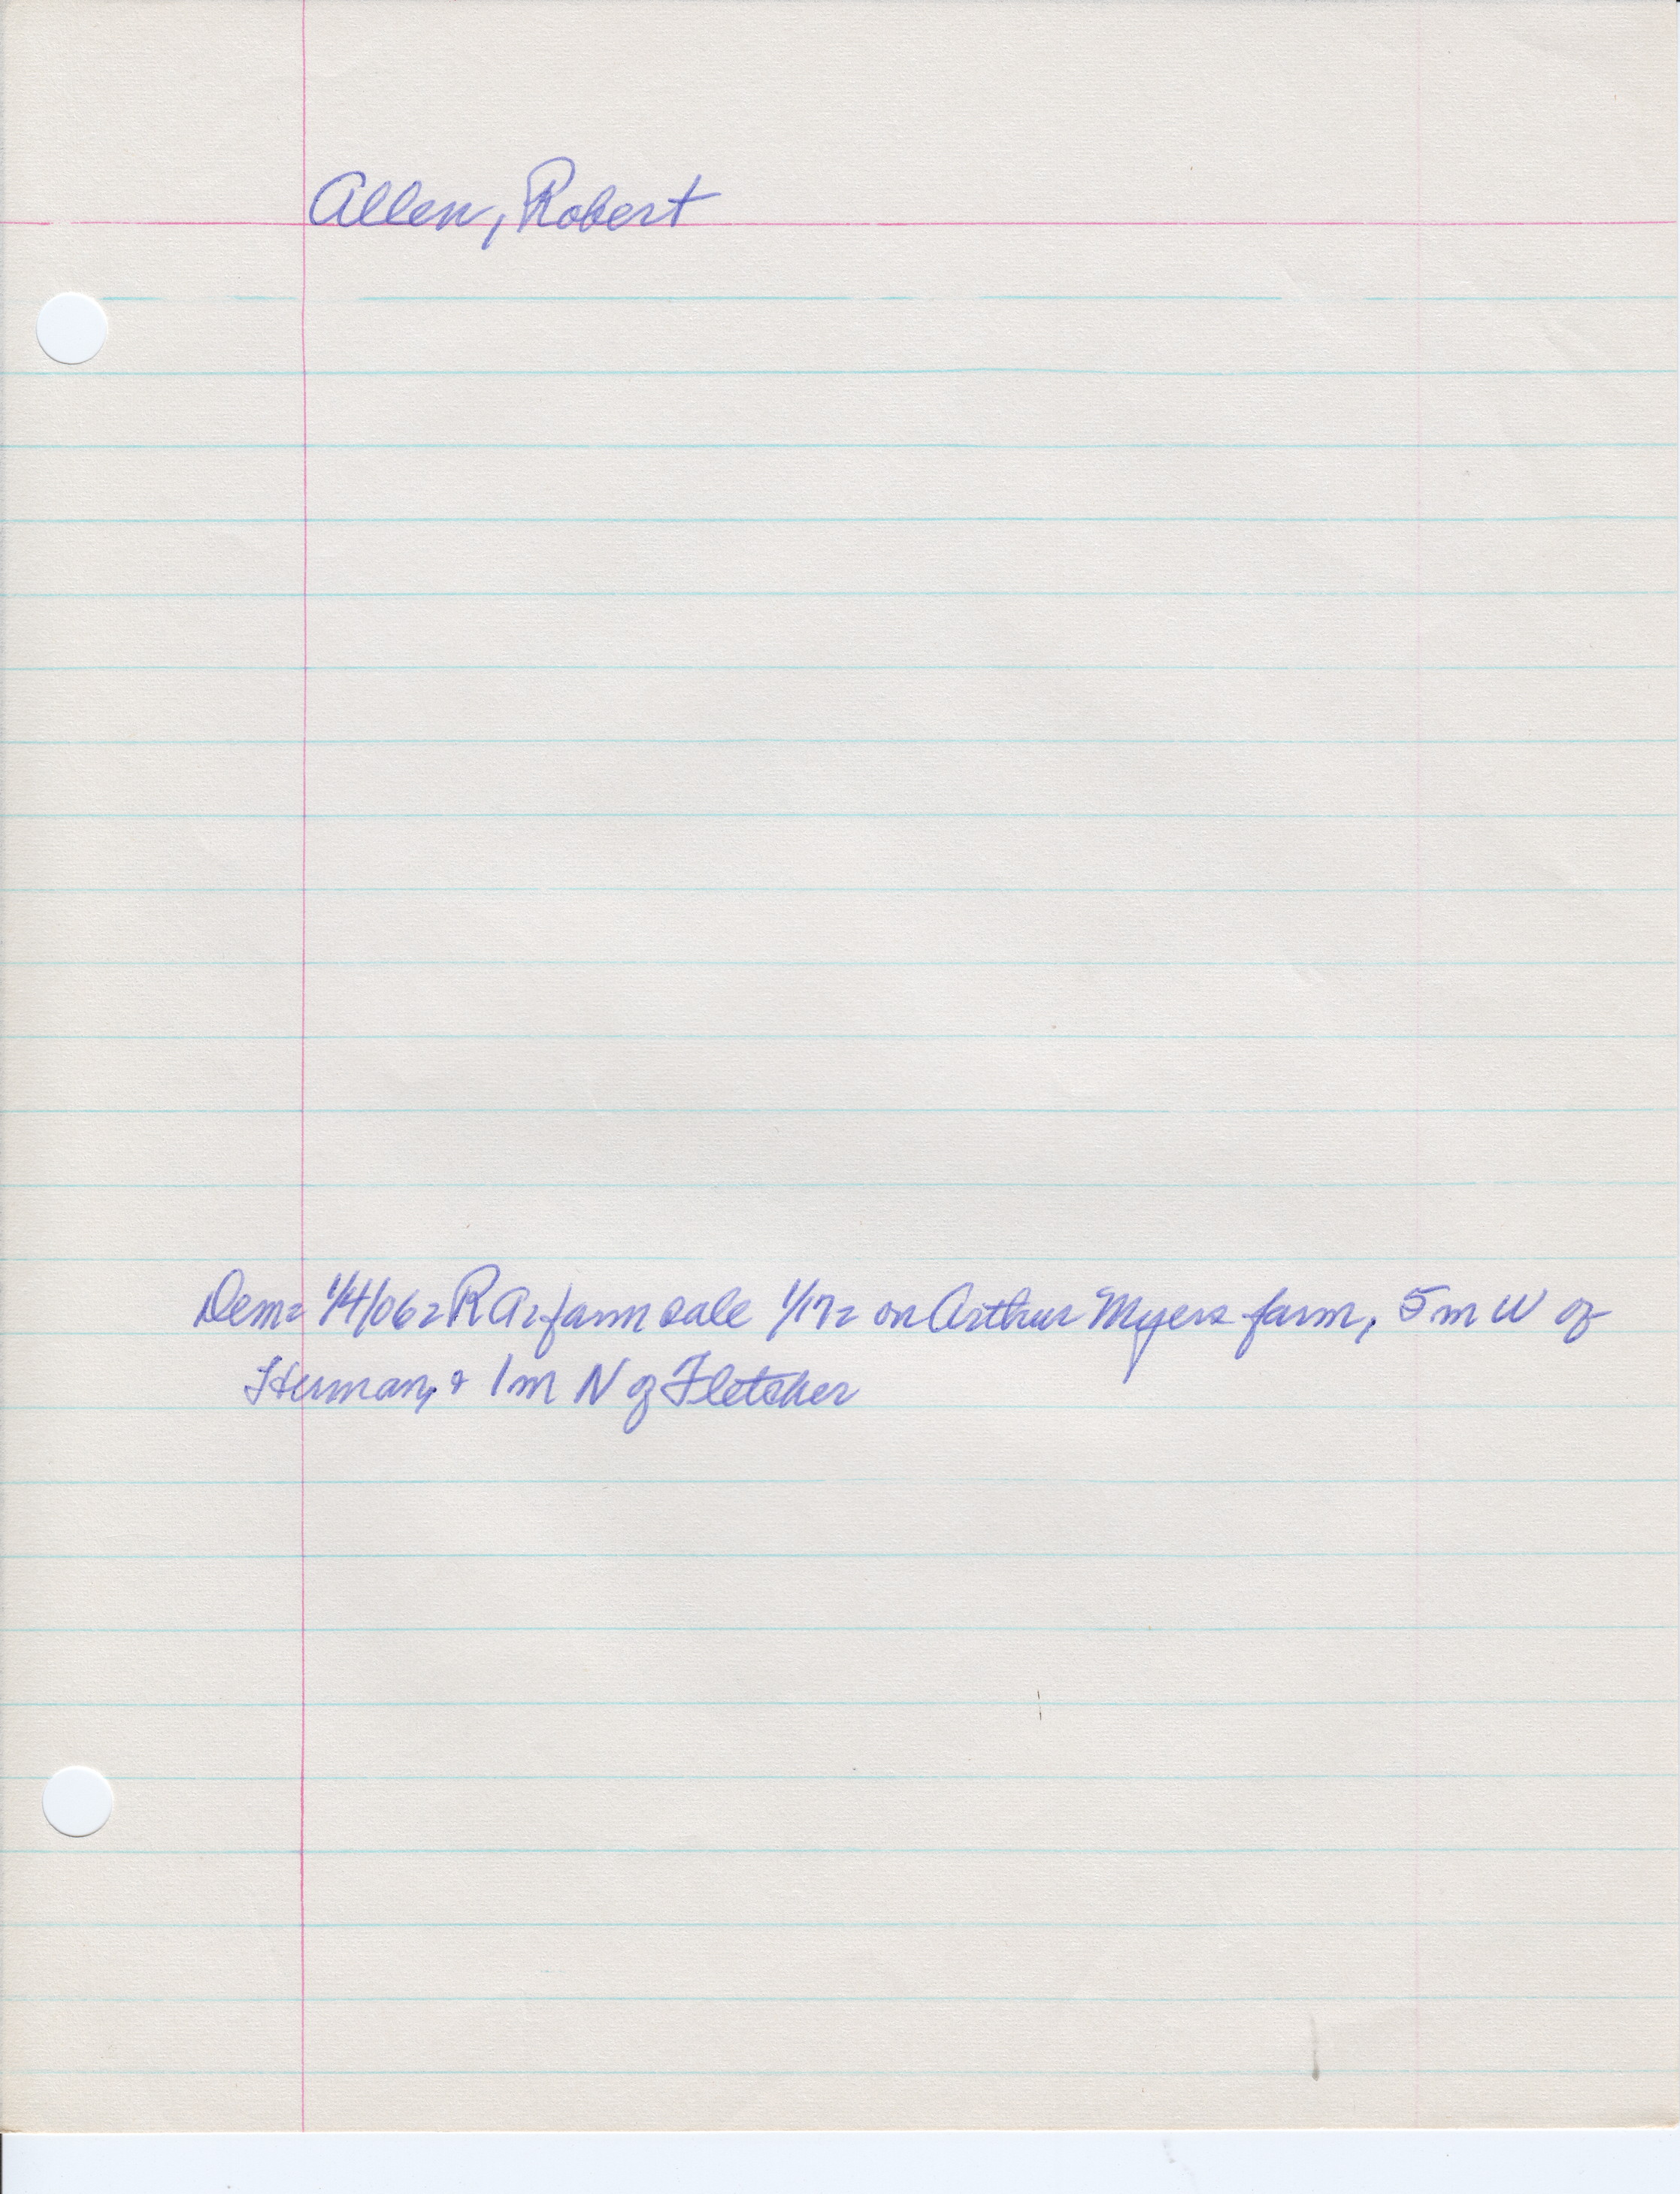 Allen, Robert
Dem= 1/4/06= R A= farm sale 1/17= on Arthur Myers farm, 5 m W of
Herman, & 1 m N of Fletcher